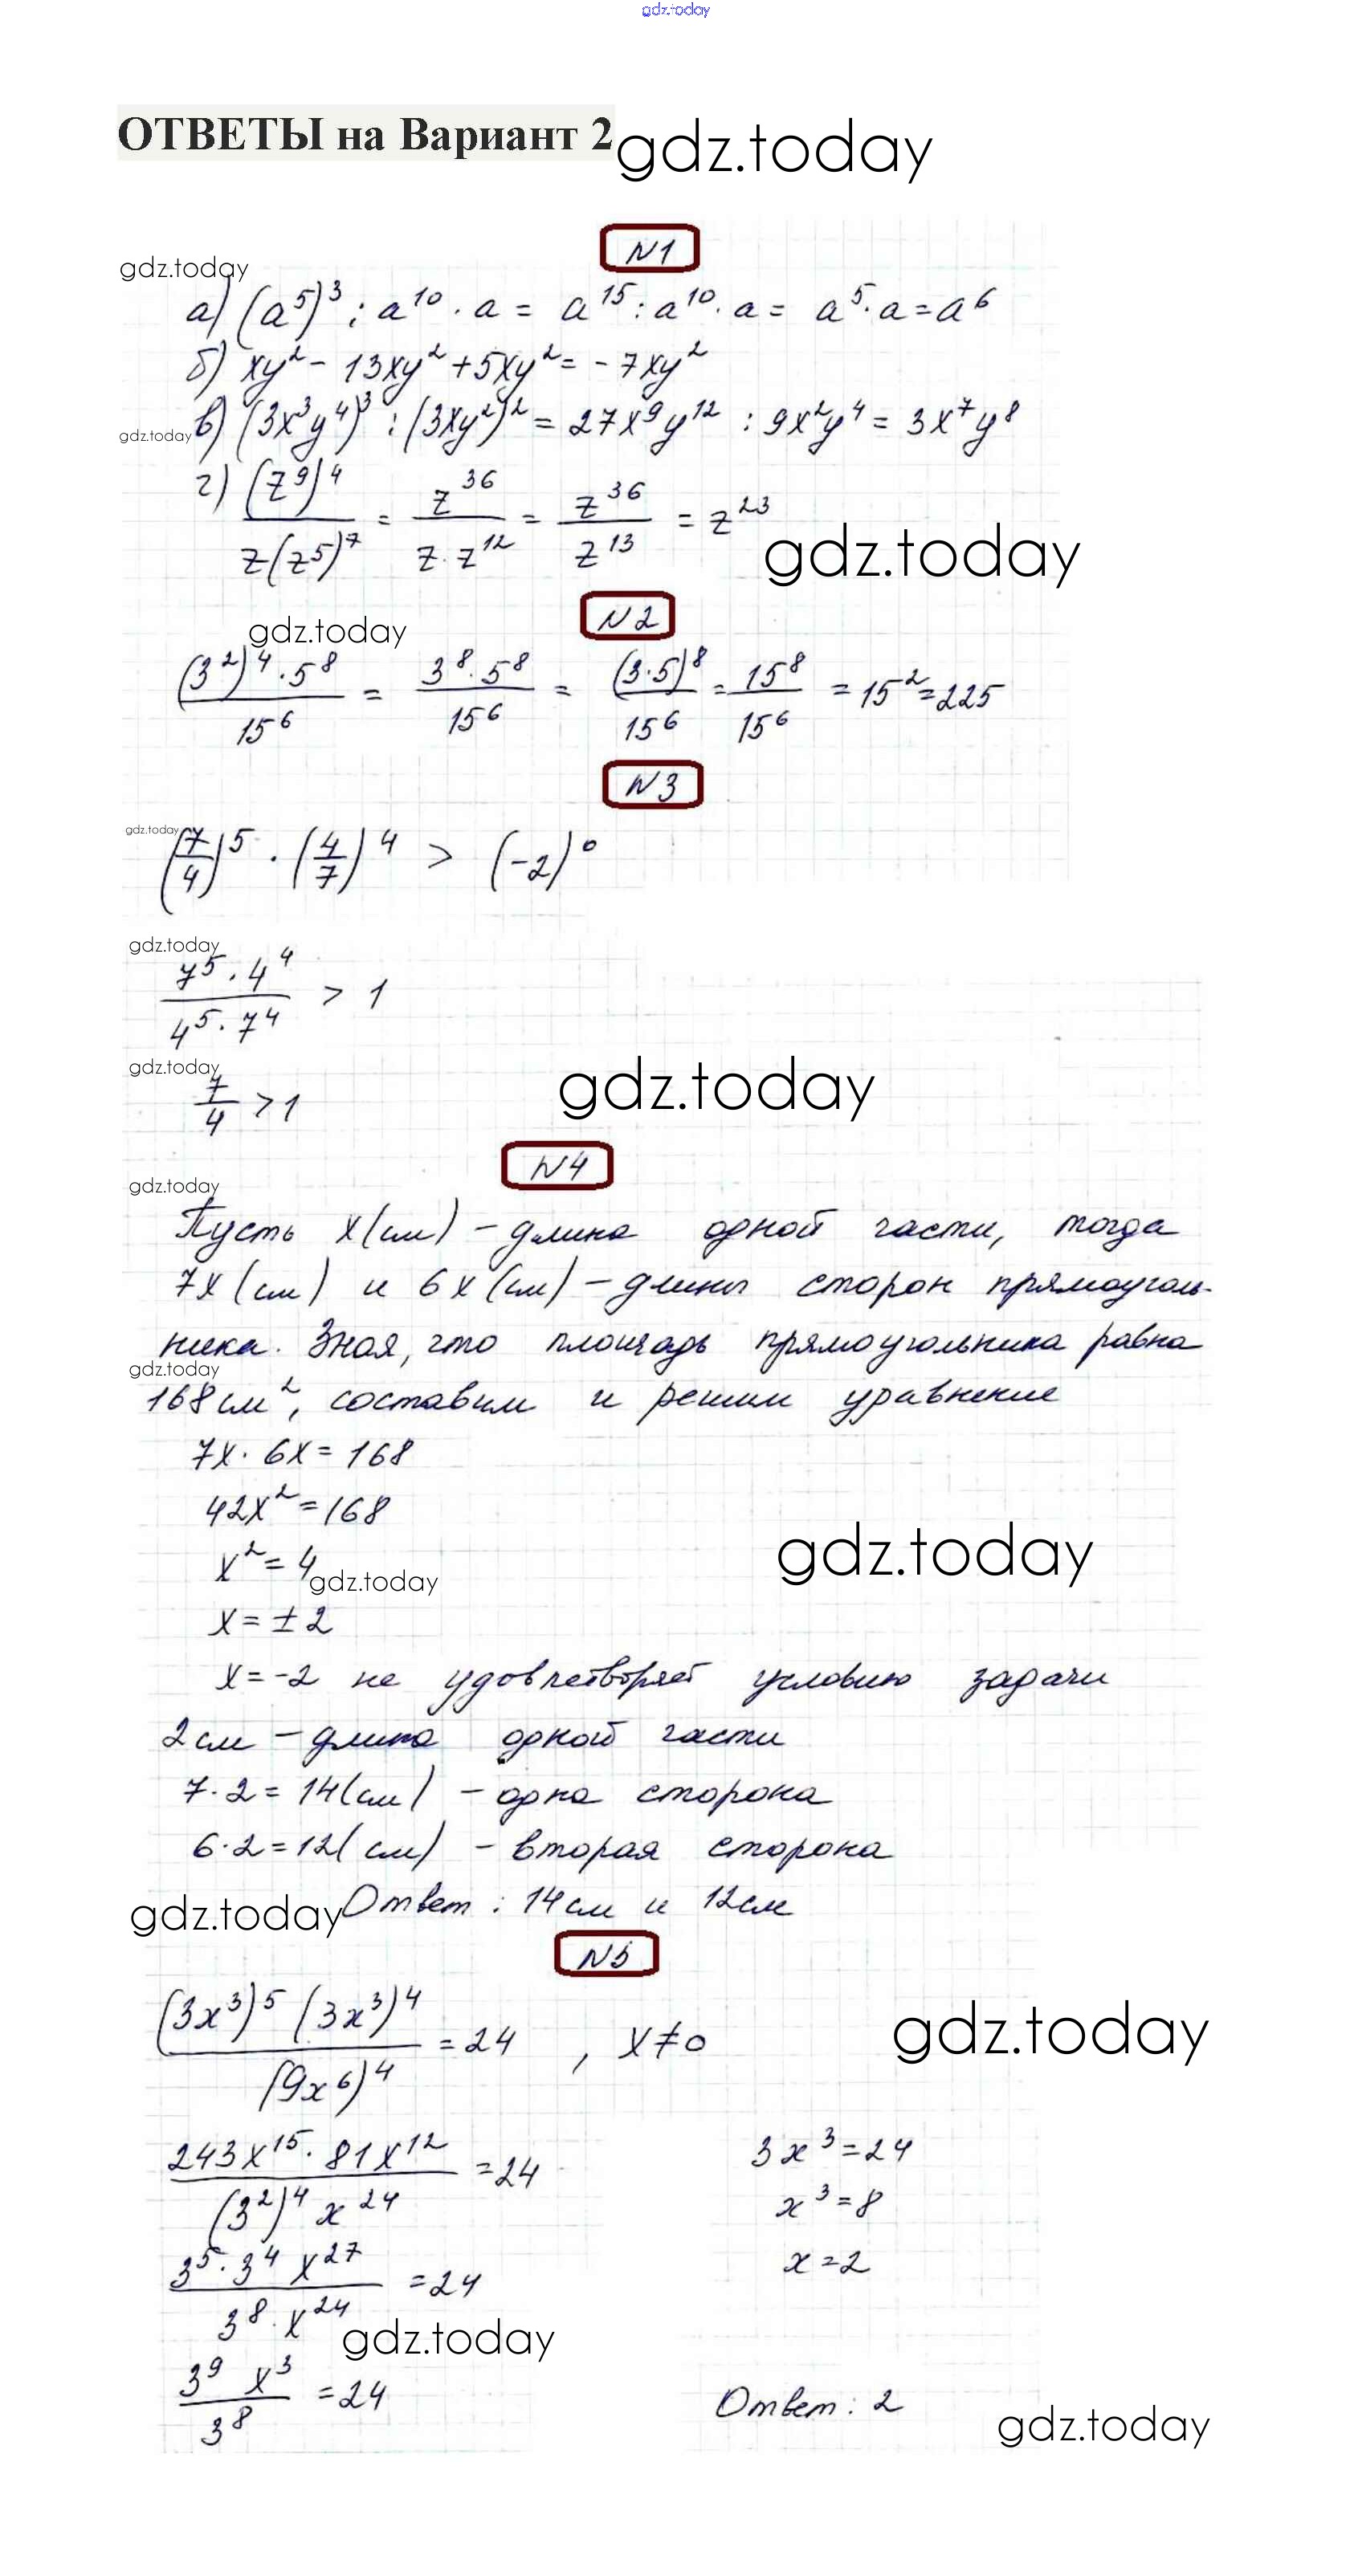 gdz.today
ОТВЕТЫ на Вариант 2 gdz.today
N1
gdz.today
а) (a⁵)³ : a¹⁰ · a = a¹⁵ : a¹⁰ · a = a⁵ · a = a⁶
б) xy² - 13xy² + 5xy² = -7xy²
gdz.today в) (3x³y⁴)³ : (3xy²)² = 27x⁹y¹² : 9x²y⁴ = 3x⁷y⁸
г) (z⁹)⁴ / z(z⁵)⁷ = z³⁶ / z · z¹² = z³⁶ / z¹³ = z²³
gdz.today
N2
gdz.today
(3²)⁴ · 5⁸ / 15⁶ = 3⁸ · 5⁸ / 15⁶ = (3·5)⁸ / 15⁶ = 15⁸ / 15⁶ = 15² = 225
N3
gdz.today
(7/4)⁵ · (4/7)⁴ > (-2)⁰
gdz.today
7⁵ · 4⁴ / 4⁵ · 7⁴ > 1
gdz.today
7/4 > 1
gdz.today
N4
gdz.today
Пусть x (см) - длина одной части, тогда
7x (см) и 6x (см) - длины сторон прямоуголь-
ника. Зная, что площадь прямоугольника равна
gdz.today
168 см², составим и решим уравнение
7x · 6x = 168
42x² = 168
gdz.today
x² = 4
gdz.today
x = ± 2
x = -2 не удовлетворяет условию задачи
2 см - длина одной части
7 · 2 = 14 (см) - одна сторона
6 · 2 = 12 (см) - вторая сторона
gdz.today Ответ: 14 см и 12 см
N5
(3x³)⁵ (3x³)⁴ / (9x⁶)⁴ = 24 , x ≠ 0
gdz.today
243x¹⁵ · 81x¹² / (3²)⁴ x²⁴ = 24
3⁵ · 3⁴ x²⁷ / 3⁸ · x²⁴ = 24
gdz.today
3⁹ x³ / 3⁸ = 24
3x³ = 24
x³ = 8
x = 2
Ответ: 2
gdz.today